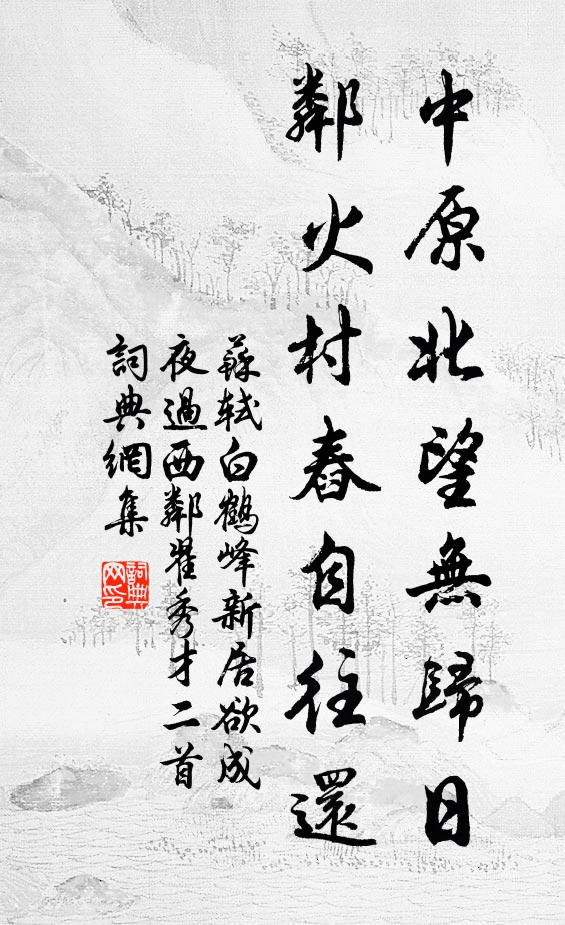 中原北望無歸日
鄰火村舂自往還
蘇軾白鶴峰新居欲成
夜過西鄰翟秀才二首
詞典網集
詞典網印